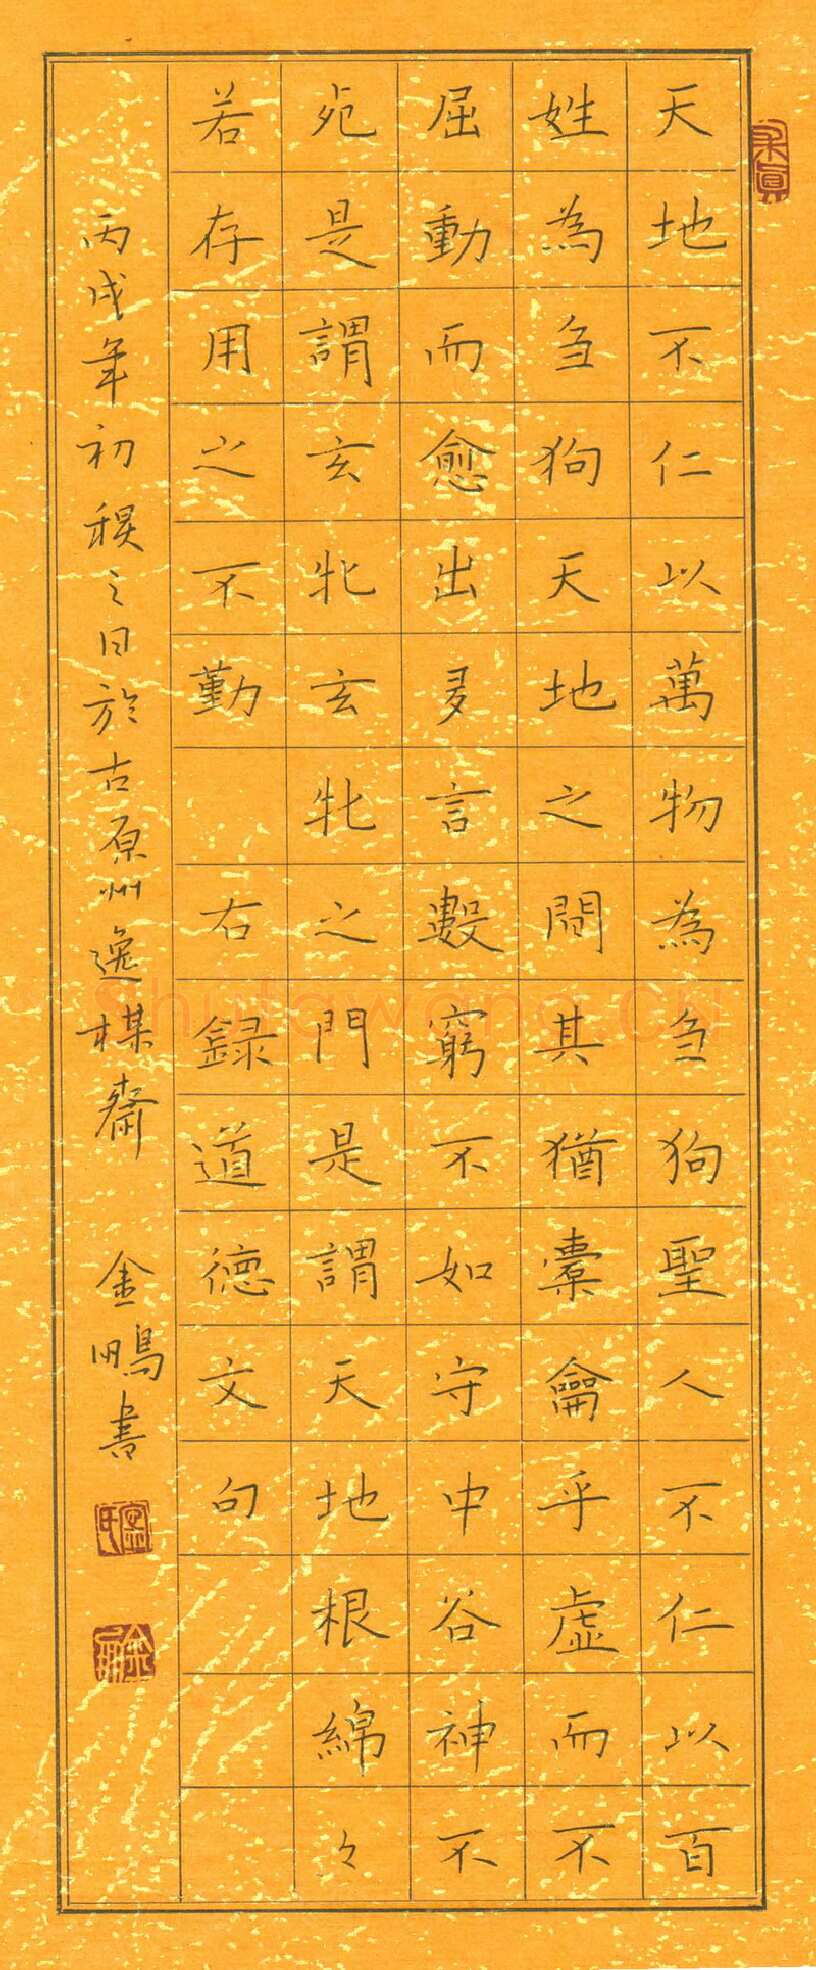 天地不仁以萬物為刍狗聖人不仁以百
姓為刍狗天地之間其猶橐龠乎虛而不
屈動而愈出多言數窮不如守中谷神不
死是謂玄牝玄牝之門是謂天地根綿々
若存用之不勤 右録道德文句
丙戌年初之日於古原州逸楳齋 金鵬書
shufawang.cn